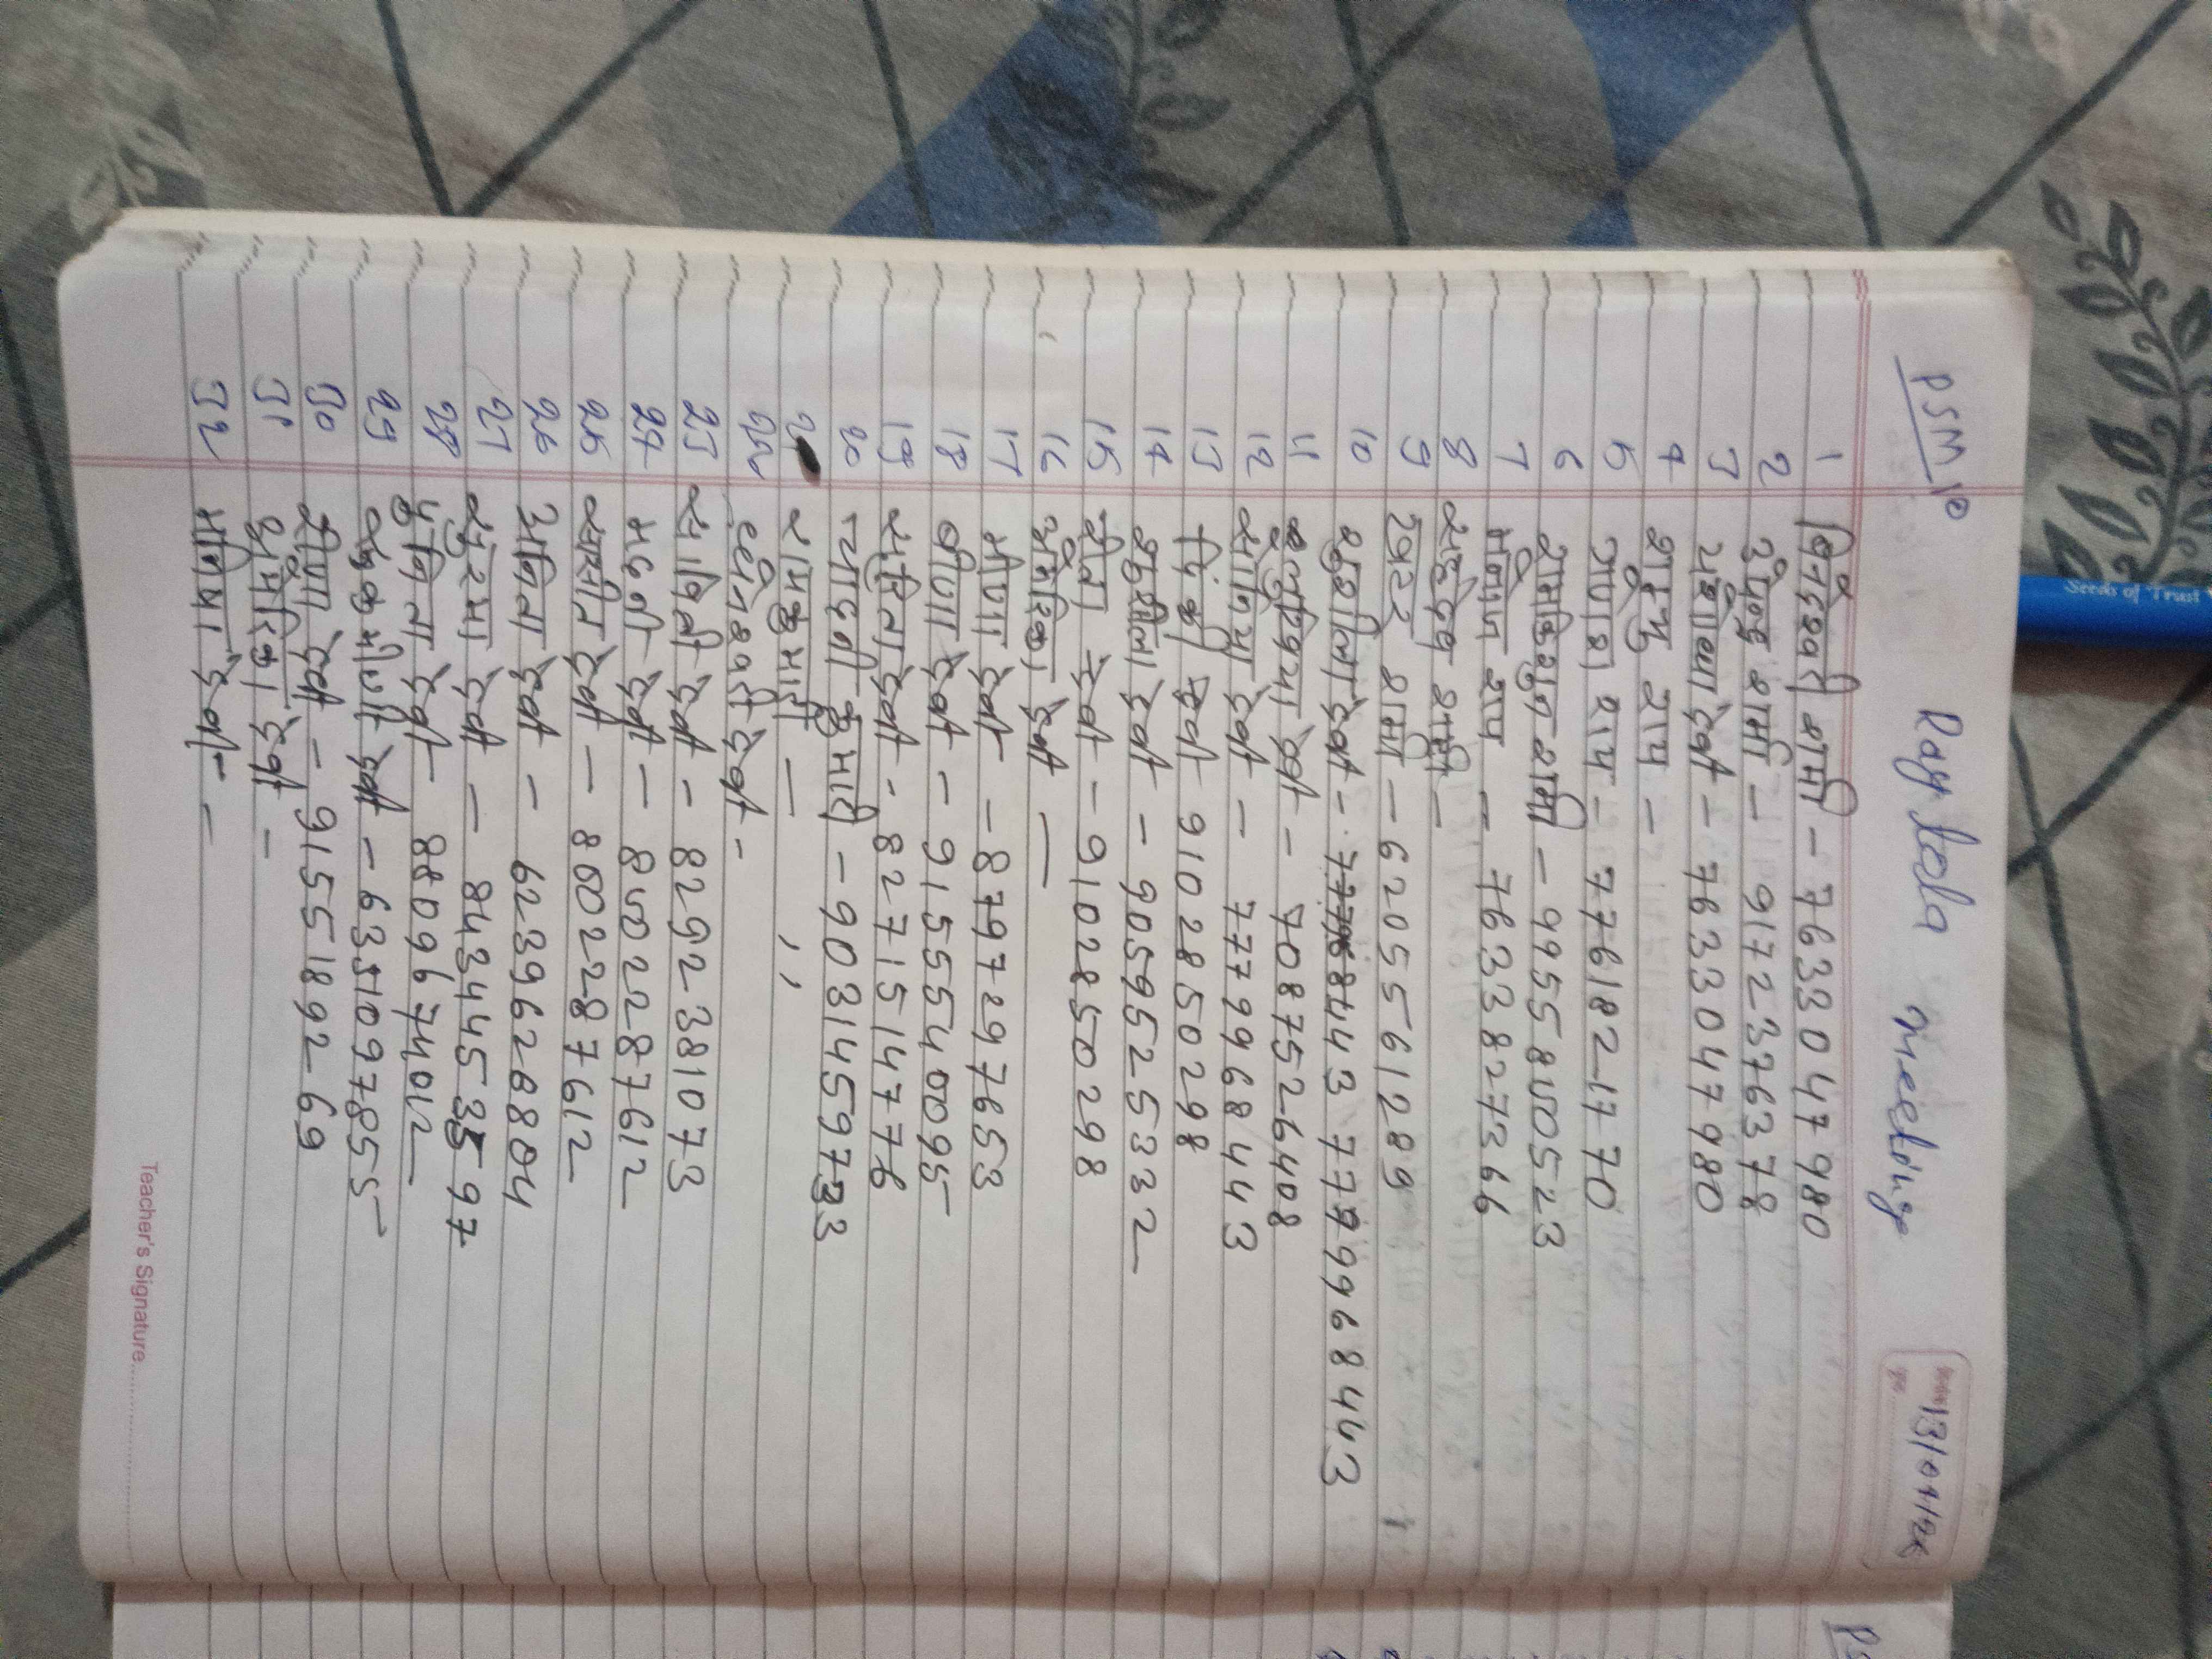 PSM 10 Ray tola meeting 13/01/26
1 विन्देश्वरी शर्मा - 7633047980
2 उपेन्द्र शर्मा - 9172376378
3 यशोधा देवी - 7633047980
4 शम्भु राय -
5 गोपाल राय - 7761821770
6 रामकिशुन शर्मा - 9955850523
7 भोजन राय - 7633827366
8 सहदेव शर्मा -
9 शंकर शर्मा - 6205561289
10 सुशीला देवी - 7779968443
11 देवी - 7087526408
12 सोनिया देवी - 7779968443
13 पिंकी देवी 9102850298
14 सुशीला देवी - 9059525332
15 गीता देवी - 9102850298
16 देवी -
17 मीणा देवी - 8797297653
18 वीणा देवी - 9155540095
19 सरिता देवी - 8271514776
20 चांदनी कुमारी - 9031459733
21 राम कुमारी - ,,
22 देवी -
23 सावित्री देवी - 8292381073
24 मालती देवी - 8002287612
25 देवी - 8002287612
26 अनिता देवी - 6239628804
27 सुरमा देवी - 8434453597
28 पुनिता देवी - 8809674012
29 देवी - 6351097855
30 मीणा देवी - 9155189269
31 देवी -
32 सोनिया देवी -
Teacher's Signature
Seeds of Trust